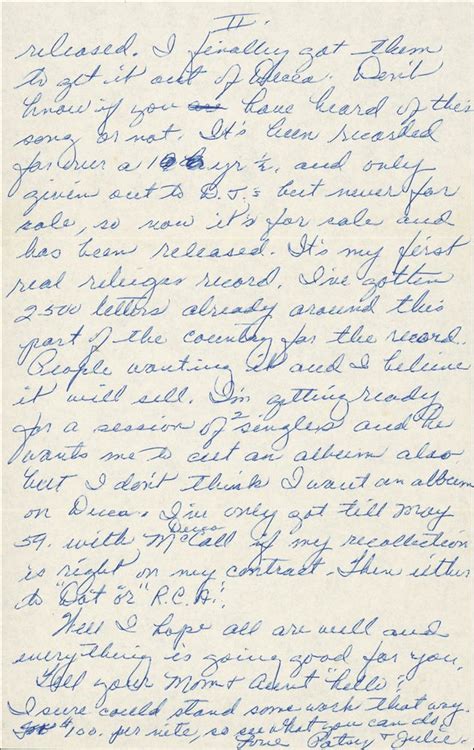 II.
released. I finally got them
to get it out of Decca. Don't
know if you have heard of this
song or not. It's been recorded
for over a 1 yr ½, and only
given out to D.J.s but never for
sale, so now it's for sale and
has been released. It's my first
real religes record. I've gotten
2500 letters already around this
part of the country for the record.
People wanting it and I believe
it will sell. I'm getting ready
for a session of 2 singles and he
wants me to cut an album also
but I don't think I want an album
on Decca. I've only got till May
59. with Decca McCall if my recollection
is right on my contract. Then either
to "Dot" or "R.C.A."
Well I hope all are well and
everything is going good for you.
Tell your Mom & Aunt "hello".
I sure could stand some work that way.
$100. per nite, so see what you can do.
Love Patsy & Julie